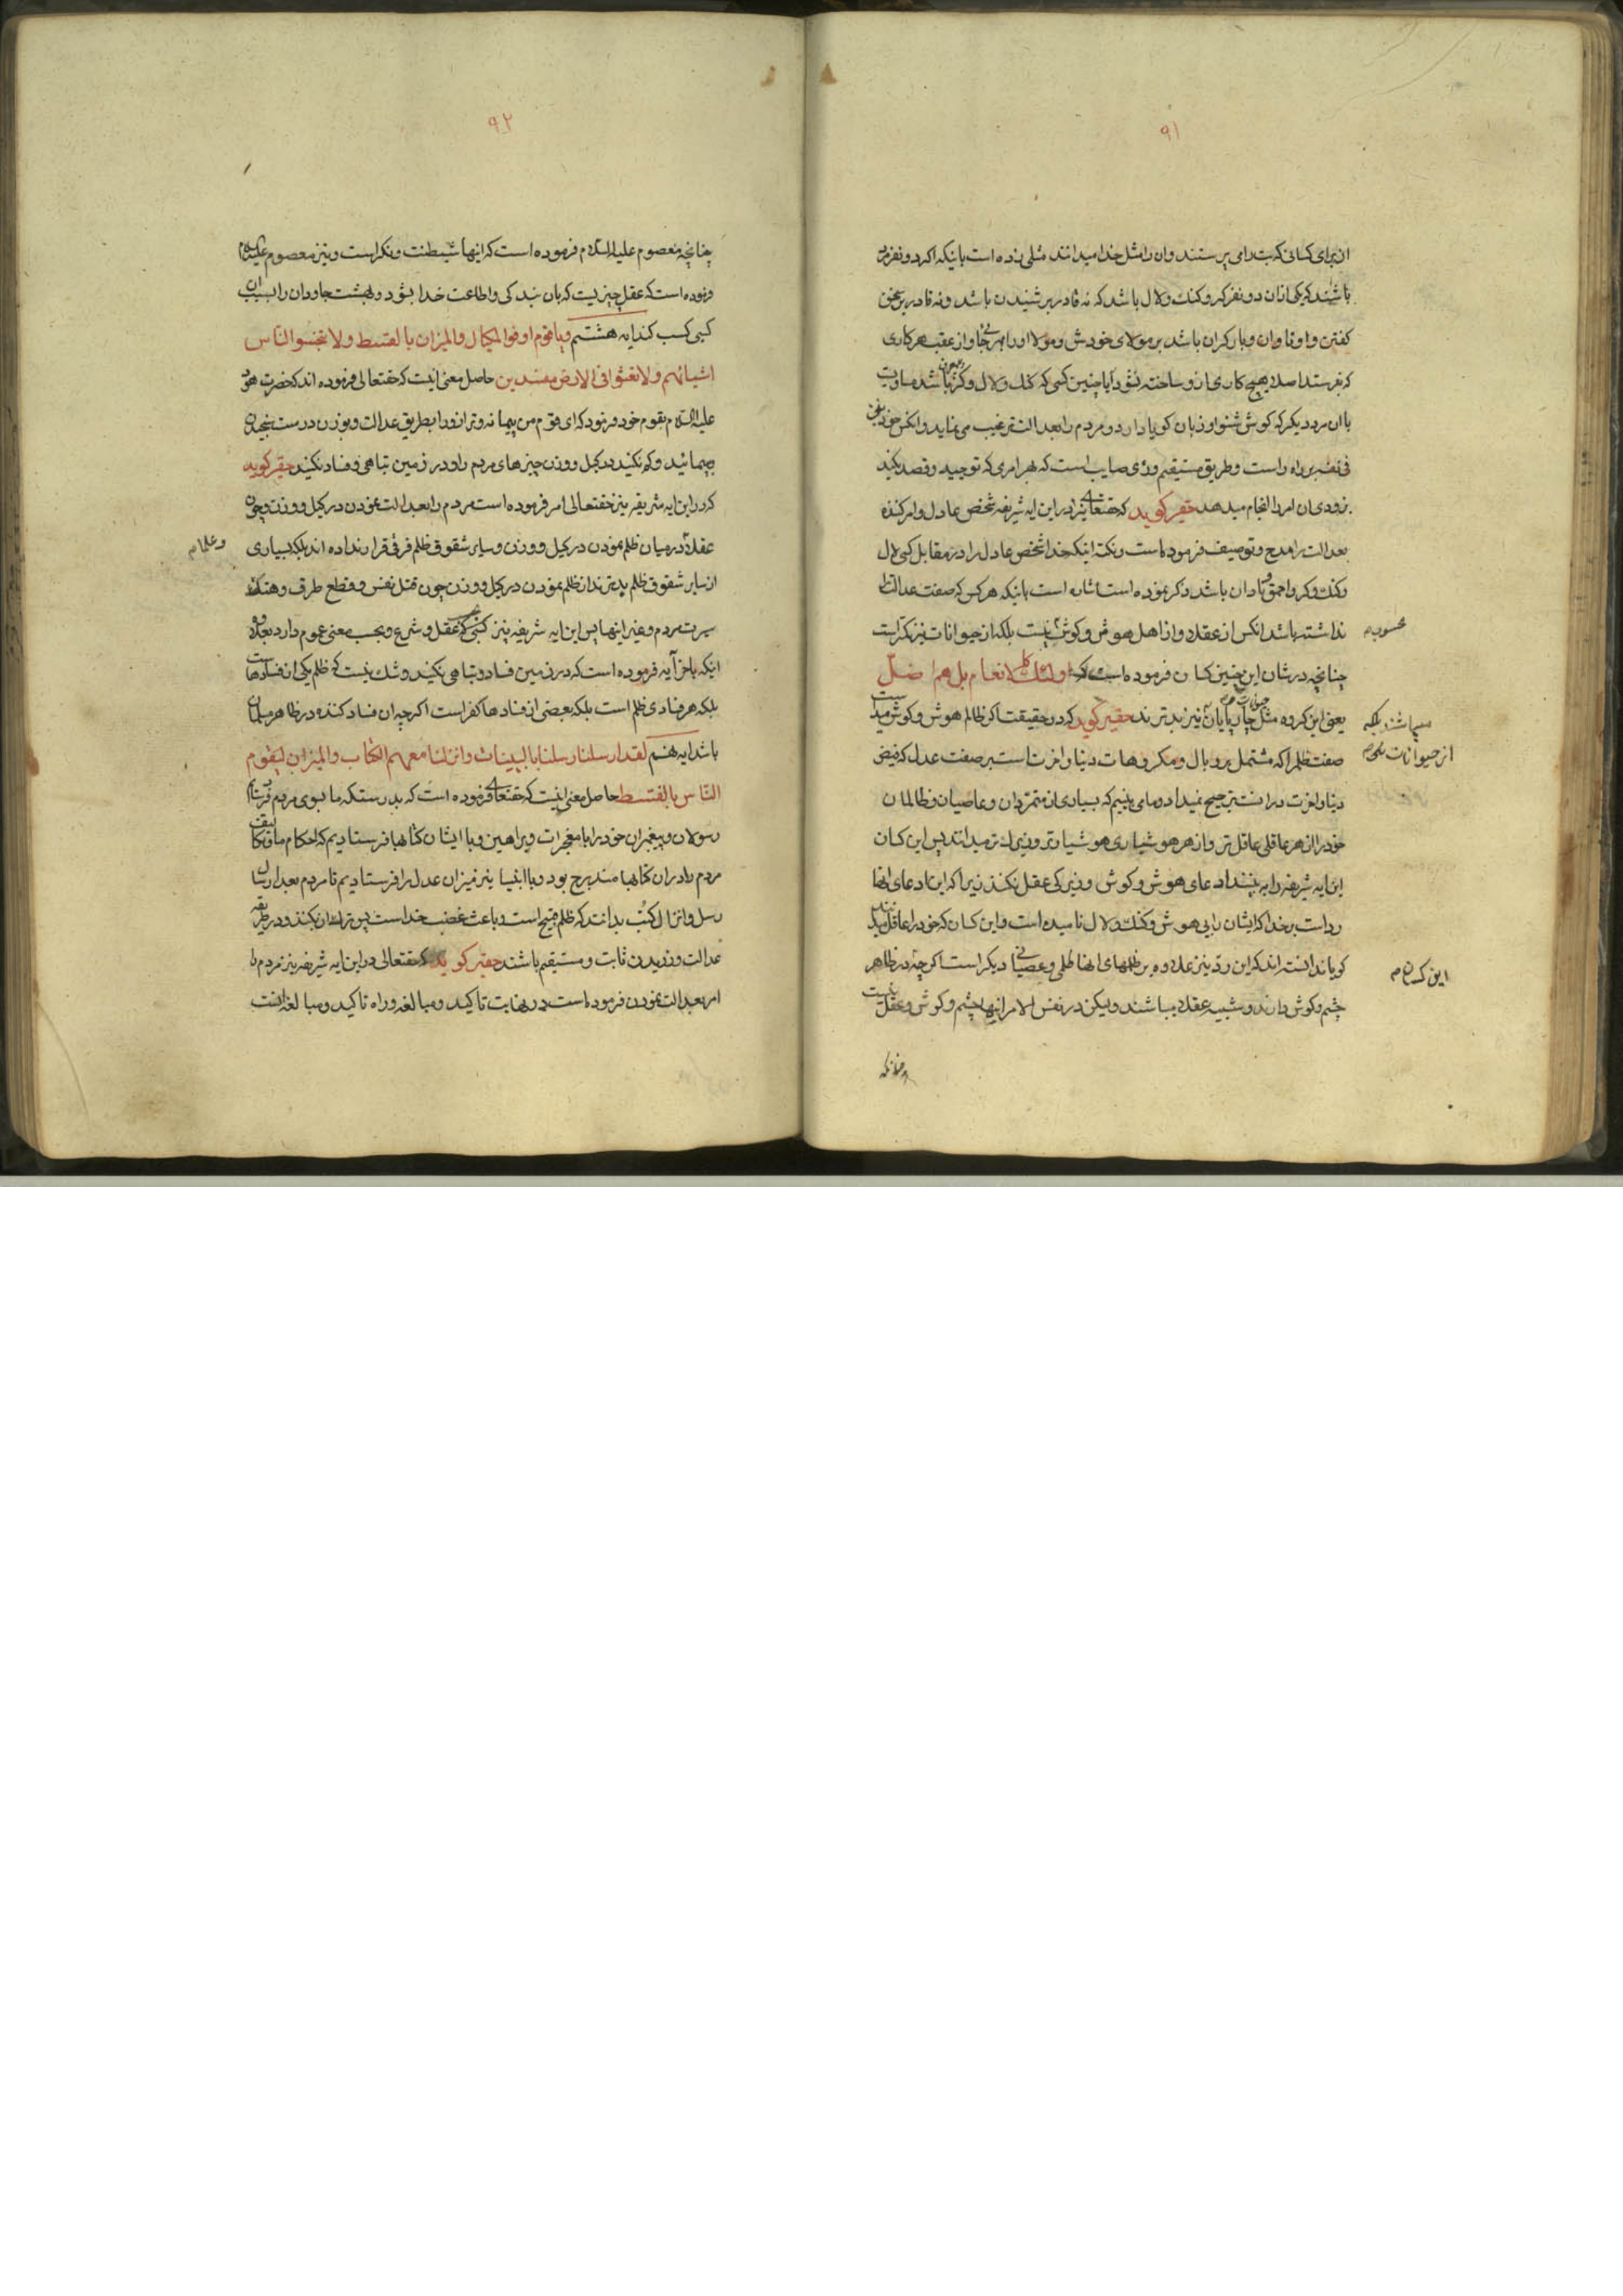 ۹۱
از برای کسانی که بت را می پرستند و ان را مثل خدا میدانند مثلی زده است باینکه اگر دو نفر مرد
باشند که یکی از ان دو نفر کر و کنک و لال باشد که نه قادر بر شنیدن باشد و نه قادر بر سخن
کفتن و او تاوان و بار کران باشد بر مولای خودش و مولا او را بهر جا و از عقب هر کاری
که بفرستد اصلا هیچ کاری از و ساخته نشود ایا چنین کسی که کنک و لال و کر باشد مساویست
با ان مرد دیکر که کوش شنوا و زبان کویا دارد و مردم را بعدالت ترغیب می نماید و انکس خود
فی نفسه بر راه راست و طریق مستقیم و رٔی صایب است که بهر امری که توجیه و قصد بکند
بزودی ان امر را انجام میدهد حقیر کوید که حقتعالی نیز در این ایه شریفه شخص عادل و امر کننده
بعدالت را مدح و توصیف فرموده است و نکته اینکه خدا شخص عادل را در مقابل کسی لال
و کنک و کر و احمق و نادان باشد ذکر نموده است اشاره است باینکه هر کس که صفت عدالت را
نداشته باشد انکس از عقلا و از اهل هوش و کوش نیست بلکه از حیوانات نیز بدتر است
محسوب م
چنانچه در شان این چنین کسان فرموده است که اولئک کالانعام بل هم اضلّ
یعنی این کروه مثل چارپایان نیز بدترند حقیر کوید که در حقیقت اکر ظالم هوش و کوش میداشت
میباشند بلکه
از حیوانات
صفت ظلم را که مشتمل بر وبال و مکروهات دنیا و اخرت است بر صفت عدل که فیض
دنیا و اخرت در انست ترجیح نمیداد و ما می بینیم که بسیاری از متمردان و عاصیان و ظالمان
خود را از هر عاقلی عاقل تر و از هر هوشیاری هوشیارتر و زیرک تر میدانند پس این کسان
این ایه شریفه را به بینند ادعای هوش و کوش و زیرکی عقل نکنند زیرا که این ادعای انها
رد است بر خدا که ایشان را بی هوش و کنک و لال نامیده است و این کسان که خود را عاقل میدانند
کویا ندانسته اند که این رد نیز علاوه بر ظلمهای انها ظلمی و عصیانی دیکر است اکر چه در ظاهر
این کسان م
چشم و کوش دارند و شبیه عقلا میباشند ولیکن در نفس الامر اینها چشم و کوش و عقل نیست
چنانکه
۹۲
چنانچه معصوم علیه السلام فرموده است که اینها شیطنت و نکراست و نیز معصوم علیه السلام
فرموده است که عقل چیزیست که بان بندکی و اطاعت خدا بشود و بهشت جاودان را بسبب ان
کسی کسب کند ایه هشتم و یا قوم اوفوا المکیال و المیزان بالقسط و لا تبخسوا النّاس
اشیائهم و لا تعثوا فی الارض مفسدین حاصل معنی اینست که حقتعالی فرموده اند که حضرت هود
علیه السلام بقوم خود فرمود که ای قوم من پیمانه و ترازو را بطریق عدالت و بوزن درست بسنجید و
بپمائید و کم نکنید در کیل و وزن چیزهای مردم را و در زمین تباهی و فساد نکنید حقیر کوید
که در این ایه شریفه نیز حقتعالی امر فرموده است مردم را بعدالت نمودن در کیل و وزن و چون
عقلا در میان ظلم نمودن در کیل و وزن و سایر شقوق ظلم فرقی قرار نداده اند بلکه بسیاری
و علما م
از سایر شقوق ظلم بدترند از ظلم نمودن در کیل و وزن چون قتل نفس و قطع طرف و هتک
سیرت مردم و غیر اینها پس این ایه شریفه نیز کسی که عقل و شرع و بحسب معنی عموم دارد بعلاوه
اینکه باخر آیه فرموده است که در زمین فساد و تباهی نکنید و شک نیست که ظلم یکی از فسادها است
بلکه هر فسادی ظلم است بلکه بعضی از فسادها کفر است اکرچه ان فساد کننده در ظاهر مسلمان
باشد ایه نهم لقد ارسلنا رسلنا بالبینات و انزلنا معهم الکتاب و المیزان لیقوم
النّاس بالقسط حاصل معنی اینست که حقتعالی فرموده است که بدرستکه ما بسوی مردم فرستادیم
رسولان و پیغمبران خود را با معجزات و براهین و با ایشان کتابها فرستادیم که احکام ما و تکالیف
مردم را در ان کتابها مندرج بود و با انبیا نیز میزان عدل را فرستادیم تا مردم بعد ارسال
رسل و انزال کتب بدانند که ظلم قبیح است و باعث غضب خداست پس ترک ان بکنند و در طریقه
عدالت ورزیدن ثابت و مستقیم باشند حقیر کوید که حقتعالی در این ایه شریفه نیز مردم را
امر بعدالت نمودن فرموده است در نهایت تاکید و مبالغه و راه تاکید و مبالغه انست